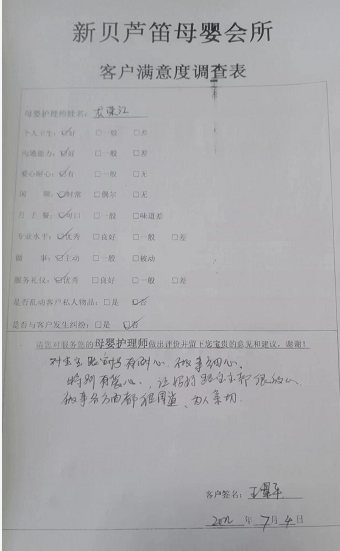 新贝芦笛母婴会所
客户满意度调查表
母婴护理师姓名：
个人卫生：☑好 □一般 □差
沟通能力：☑好 □一般 □差
爱心耐心：☑有 □一般 □无
回 □时常 □偶尔 □无
月子餐：☑可口 □一般 □味道差
专业水平：☑优秀 □良好 □一般 □差
做 事：☑主动 □一般 □被动
服务礼仪：☑优秀 □良好 □一般 □差
是否乱动客户私人物品：□是 ☑否
是否与客户发生纠纷：□是 ☑否
请您对服务您的母婴护理师做出评价并留下您宝贵的意见和建议，谢谢！
对宝宝 有耐心、做事细心。
特别有爱心，让妈妈 宝宝都很放心
做事各方面都很周道，为人亲切
客户签名：王
年 7 月 4 日